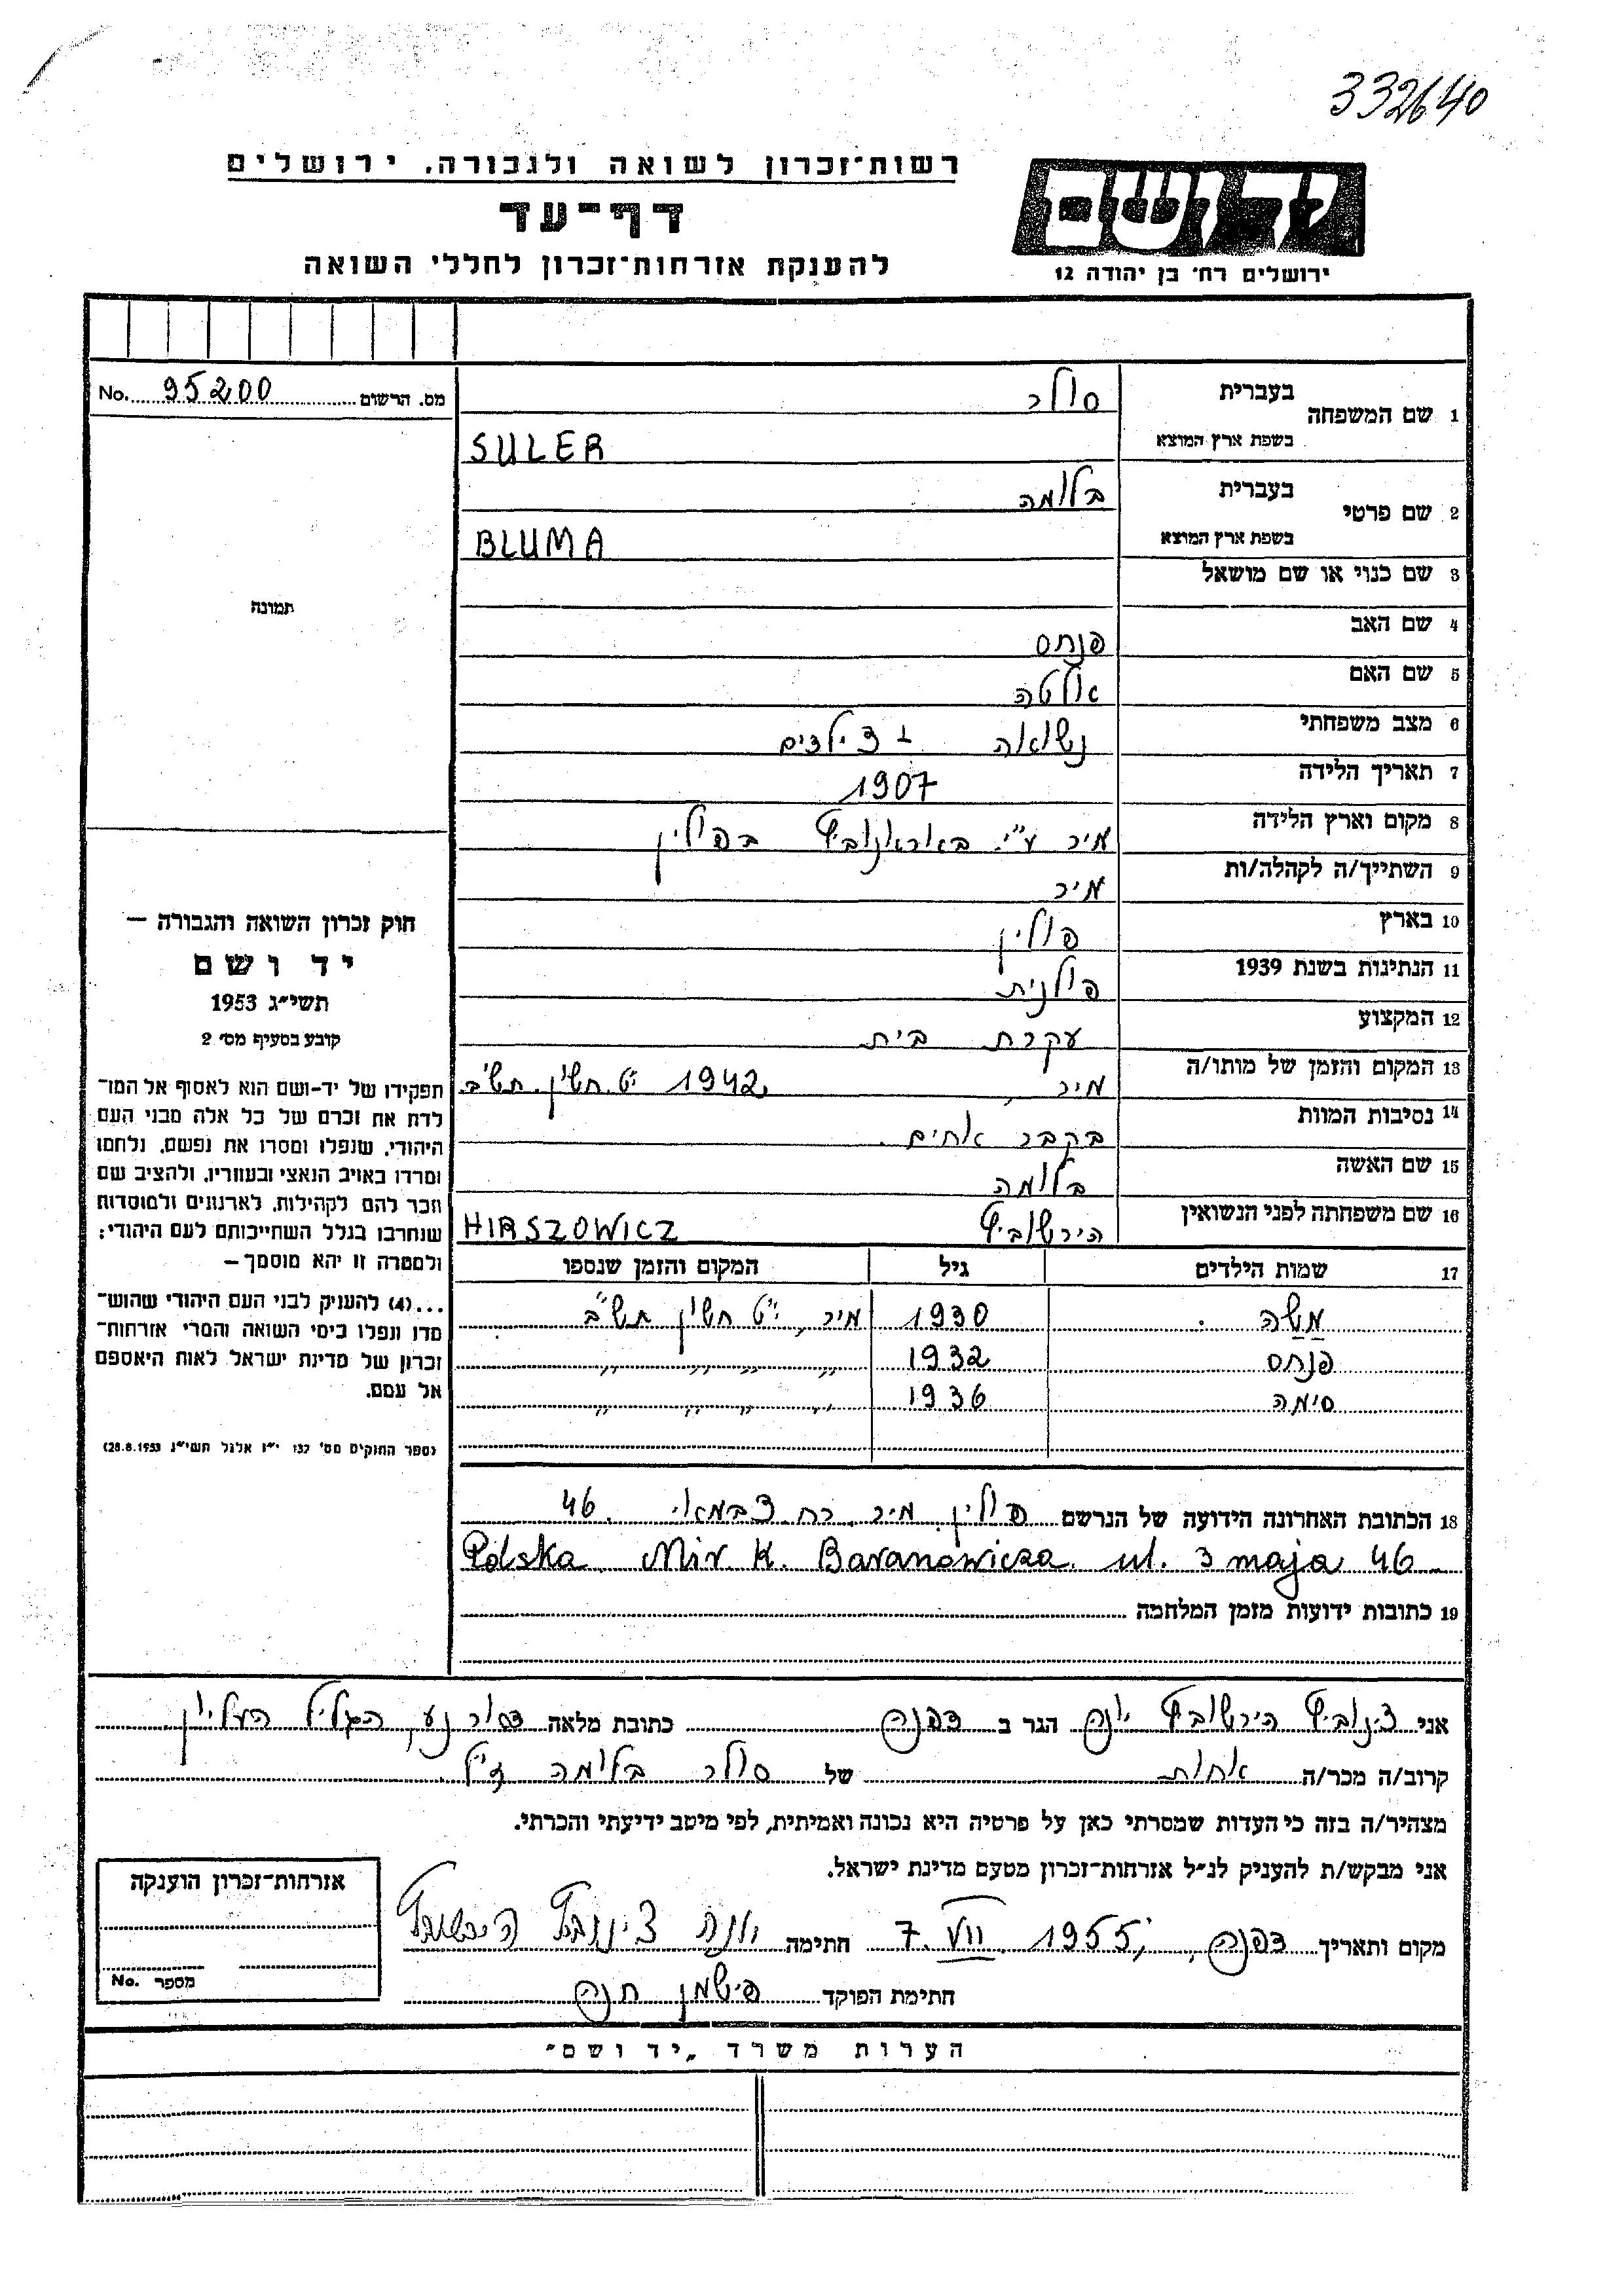 332640
רשות-זכרון לשואה ולגבורה, ירושלים
דף-עד
להענקת אזרחות-זכרון לחללי השואה
יד ושם
ירושלים רח׳ בן יהודה 12
מס. הרשום 95200 No.
1 שם המשפחה בעברית סולר
בשפת ארץ המוצא SULER
2 שם פרטי בעברית בלומה
בשפת ארץ המוצא BLUMA
3 שם כנוי או שם מושאל
תמונה
4 שם האב פנחס
5 שם האם אלטה
6 מצב משפחתי נשואה + 3 ילדים
7 תאריך הלידה 1907
8 מקום וארץ הלידה מיר ע״י באראנוביץ בפולין
9 השתייך/ה לקהלה/ות מיר
10 בארץ פולין
11 הנתינות בשנת 1939 פולנית
12 המקצוע עקרת בית
13 המקום והזמן של מותו/ה מיר, 1942 י״ט חשון תש״ב
14 נסיבות המוות בקבר אחים.
15 שם האשה בלומה
16 שם משפחתה לפני הנשואין הירשוביץ HIRSZOWICZ
17 שמות הילדים גיל המקום והזמן שנספו
משה 1930 מיר, י״ט חשון תש״ב
פנחס 1932 " " " "
סימה 1936 " " " "
חוק זכרון השואה והגבורה –
יד ושם
תשי״ג 1953
קובע בסעיף מס׳ 2
תפקידו של יד-ושם הוא לאסוף אל המו-
לדת את זכרם של כל אלה מבני העם
היהודי, שנפלו ומסרו את נפשם, נלחמו
ומרדו באויב הנאצי ובעוזריו, ולהציב שם
וזכר להם לקהילות, לארגונים ולמוסדות
שנחרבו בגלל השתייכותם לעם היהודי;
ולמטרה זו יהא מוסמך –
...(4) להעניק לבני העם היהודי שהוש-
מדו ונפלו בימי השואה והמרי אזרחות-
זכרון של מדינת ישראל לאות היאספם
אל עמם.
(ספר החוקים מס׳ 132 י״ז אלול תשי״ג 28.8.1953)
18 הכתובת האחרונה הידועה של הנרשם פולין, מיר, רח 3 במאי 46.
Polska Mir K. Baranowicza ul. 3 maja 46
19 כתובות ידועות מזמן המלחמה
אני הירשוביץ יונה הגר ב דפנה כתובת מלאה דאר נע, הגליל העליון
קרוב/ה מכר/ה אחות של סולר בלומה ז״ל
מצהיר/ה בזה כי העדות שמסרתי כאן על פרטיה היא נכונה ואמיתית, לפי מיטב ידיעתי והכרתי.
אני מבקש/ת להעניק לנ״ל אזרחות-זכרון מטעם מדינת ישראל.
מקום ותאריך דפנה, 7. VII 1955 חתימה יונה הירשוביץ
חתימת הפוקד פישמן חנה
אזרחות-זכרון הוענקה
מספר No.
הערות משרד „יד ושם"